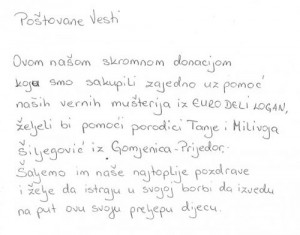 Poštovane Vesti
Ovom našom skromnom donacijom
koja smo sakupili zajedno uz pomoć
naših vernih mušterija iz EURO DELI LOGAN,
željeli bi pomoći porodici Tanje i Milivoja
Šiljegović iz Gomjenica-Prijedor.
Šaljemo im naše najtoplije pozdrave
i želje da istraju u svojoj borbi da izvedu
na put ovu svoju preljepu dijecu.